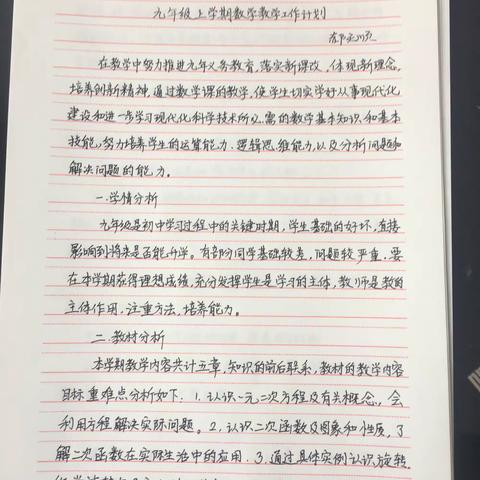 九年级上学期数学教学工作计划
在教学中努力推进九年义务教育,落实新课改,体现新理念,
培养创新精神。通过数学课的教学,使学生切实学好从事现代化
建设和进一步学习现代化科学技术所必需的数学基本知识和基本
技能,努力培养学生的运算能力、逻辑思维能力,以及分析问题和
解决问题的能力。
一.学情分析
九年级是初中学习过程中的关键时期,学生基础的好坏,直接
影响到将来是否能升学。有部分同学基础较差,问题较严重。要
在本学期获得理想成绩,充分发挥学生是学习的主体,教师是教的
主体作用,注重方法,培养能力。
二.教材分析
本学期教学内容共计五章,知识的前后联系,教材的教学内容
目标重难点分析如下:1.认识一元二次方程及有关概念,会
利用方程解决实际问题。2.认识二次函数及图象和性质,了
解二次函数在实际生活中的应用.3.通过具体实例认识旋转.